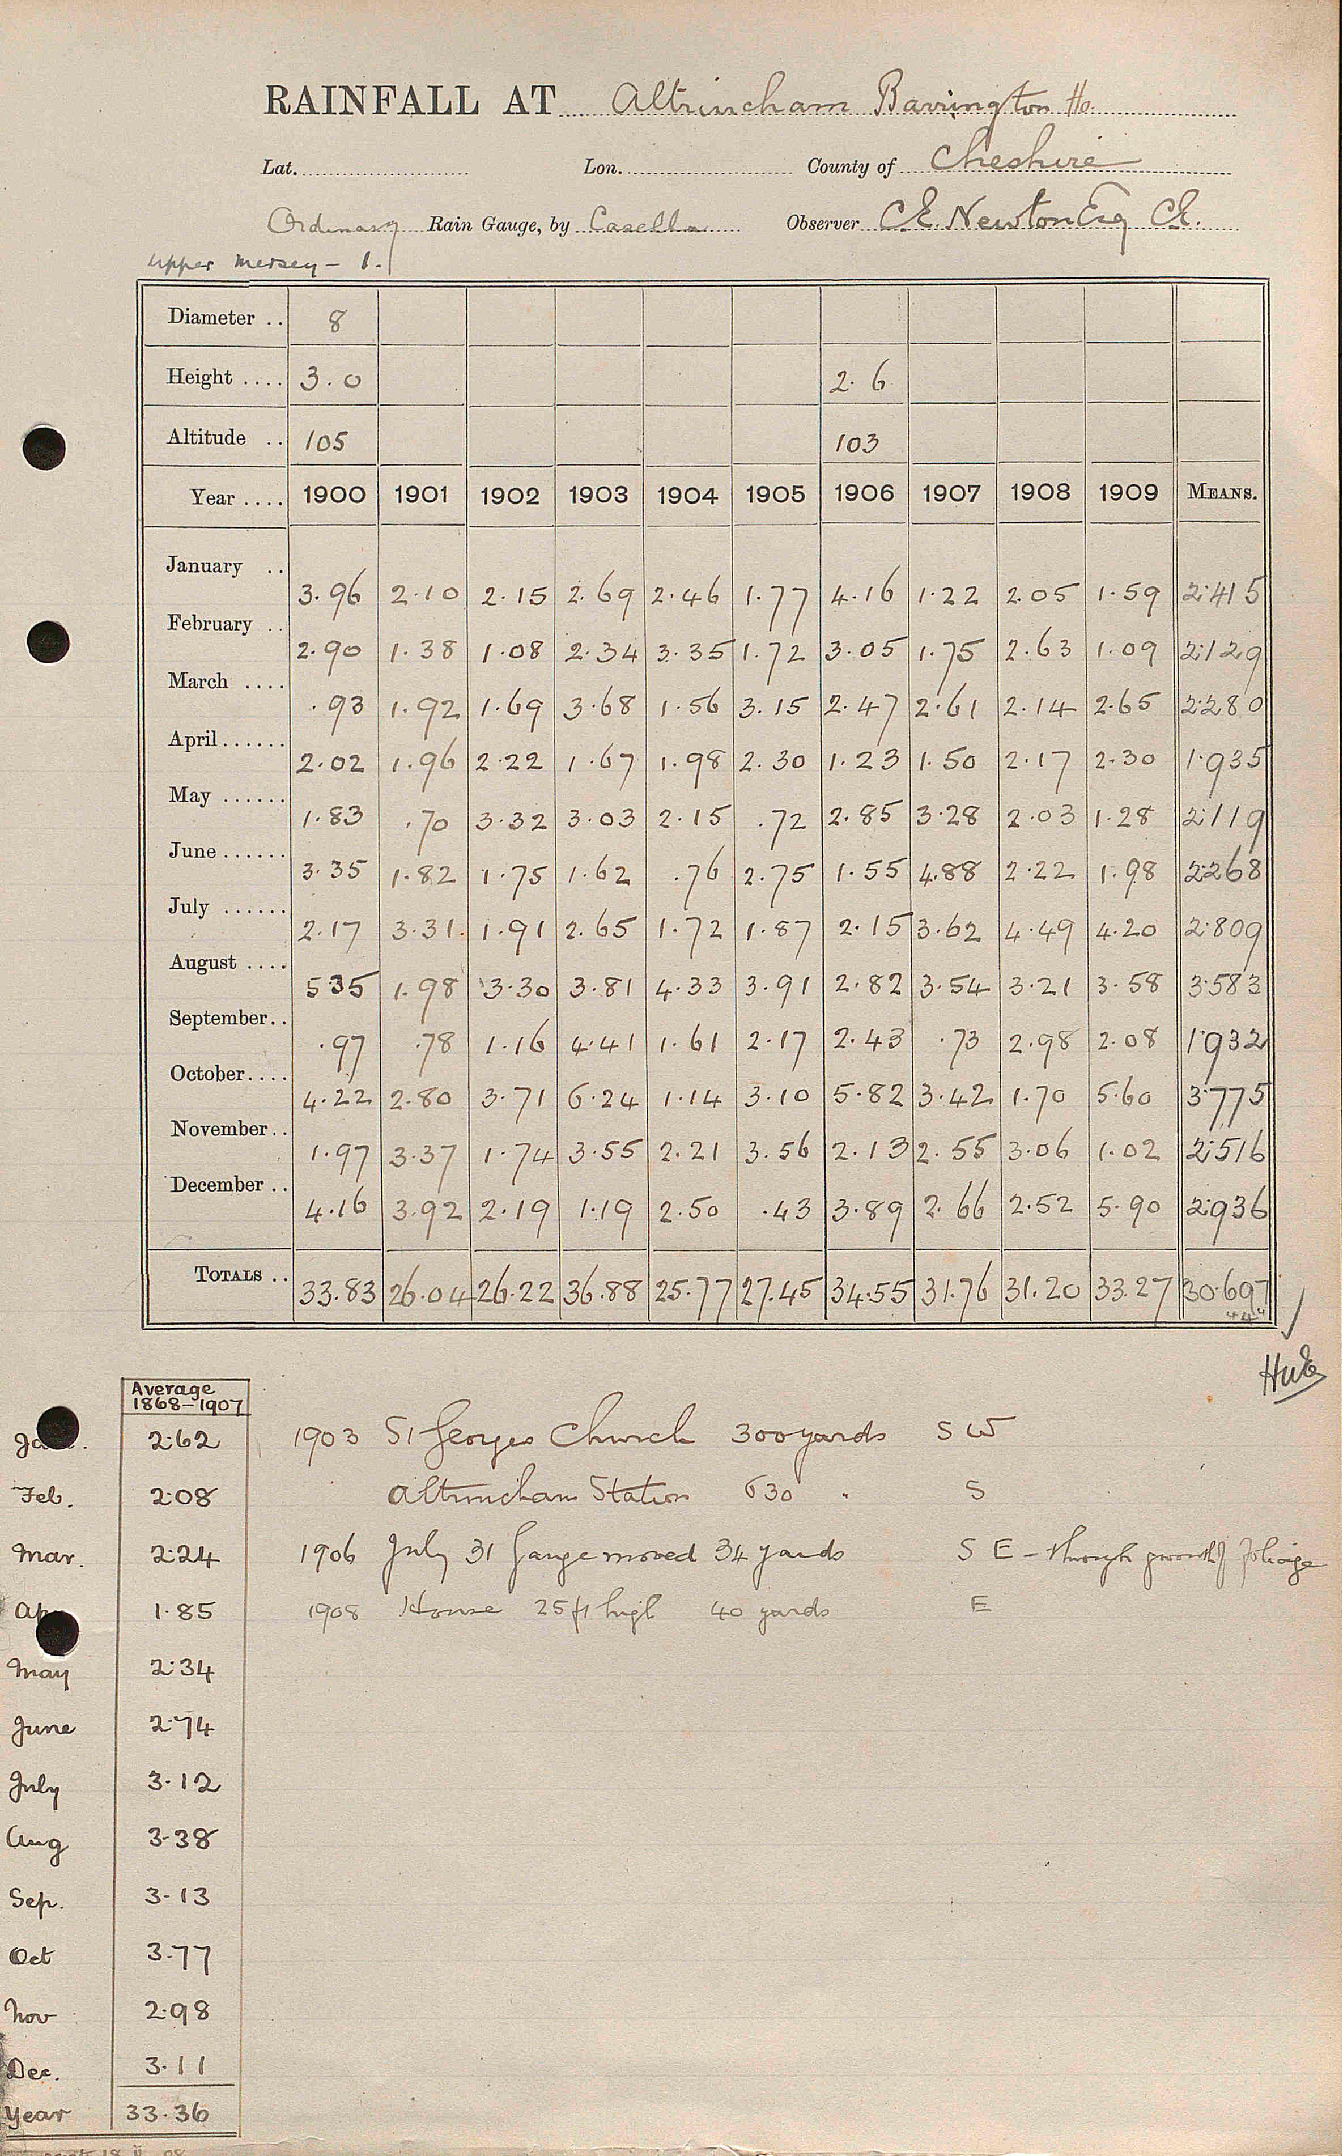 RAINFALL AT Altrincham Barrington Ho.
Lat. Lon. County of Cheshire
Ordinary Rain Gauge, by Casella Observer C.E. Newton Esq CE.
Upper Mersey - 1.
Diameter .. 8
Height .... 3.0 2.6
Altitude .. 105 103
Year .... 1900 1901 1902 1903 1904 1905 1906 1907 1908 1909 MEANS.
January .. 3.96 2.10 2.15 2.69 2.46 1.77 4.16 1.22 2.05 1.59 2.415
February .. 2.90 1.38 1.08 2.34 3.35 1.72 3.05 1.75 2.63 1.09 2.129
March .... .93 1.92 1.69 3.68 1.56 3.15 2.47 2.61 2.14 2.65 2.280
April ...... 2.02 1.96 2.22 1.67 1.98 2.30 1.23 1.50 2.17 2.30 1.935
May ...... 1.83 .70 3.32 3.03 2.15 .72 2.85 3.28 2.03 1.28 2.119
June ...... 3.35 1.82 1.75 1.62 .76 2.75 1.55 4.88 2.22 1.98 2.268
July ...... 2.17 3.31 1.91 2.65 1.72 1.87 2.15 3.62 4.49 4.20 2.809
August .... 5.35 1.98 3.30 3.81 4.33 3.91 2.82 3.54 3.21 3.58 3.583
September .. .97 .78 1.16 4.41 1.61 2.17 2.43 .73 2.98 2.08 1.932
October .... 4.22 2.80 3.71 6.24 1.14 3.10 5.82 3.42 1.70 5.60 3.775
November .. 1.97 3.37 1.74 3.55 2.21 3.56 2.13 2.55 3.06 1.02 2.516
December .. 4.16 3.92 2.19 1.19 2.50 .43 3.89 2.66 2.52 5.90 2.936
TOTALS .. 33.83 26.04 26.22 36.88 25.77 27.45 34.55 31.76 31.20 33.27 30.697
Average
1868-1907
2.62 1903 St Georges Church 300 yards S W
Feb. 2.08 Altrincham Station 630 . S
Mar. 2.24 1906 July 31 Gauge moved 34 yards S E - through growth of foliage
1.85 1908 House 25 ft high 40 yards E
May 2.34
June 2.74
July 3.12
Aug 3.38
Sep. 3.13
Oct 3.77
Nov 2.98
Dec. 3.11
Year 33.36